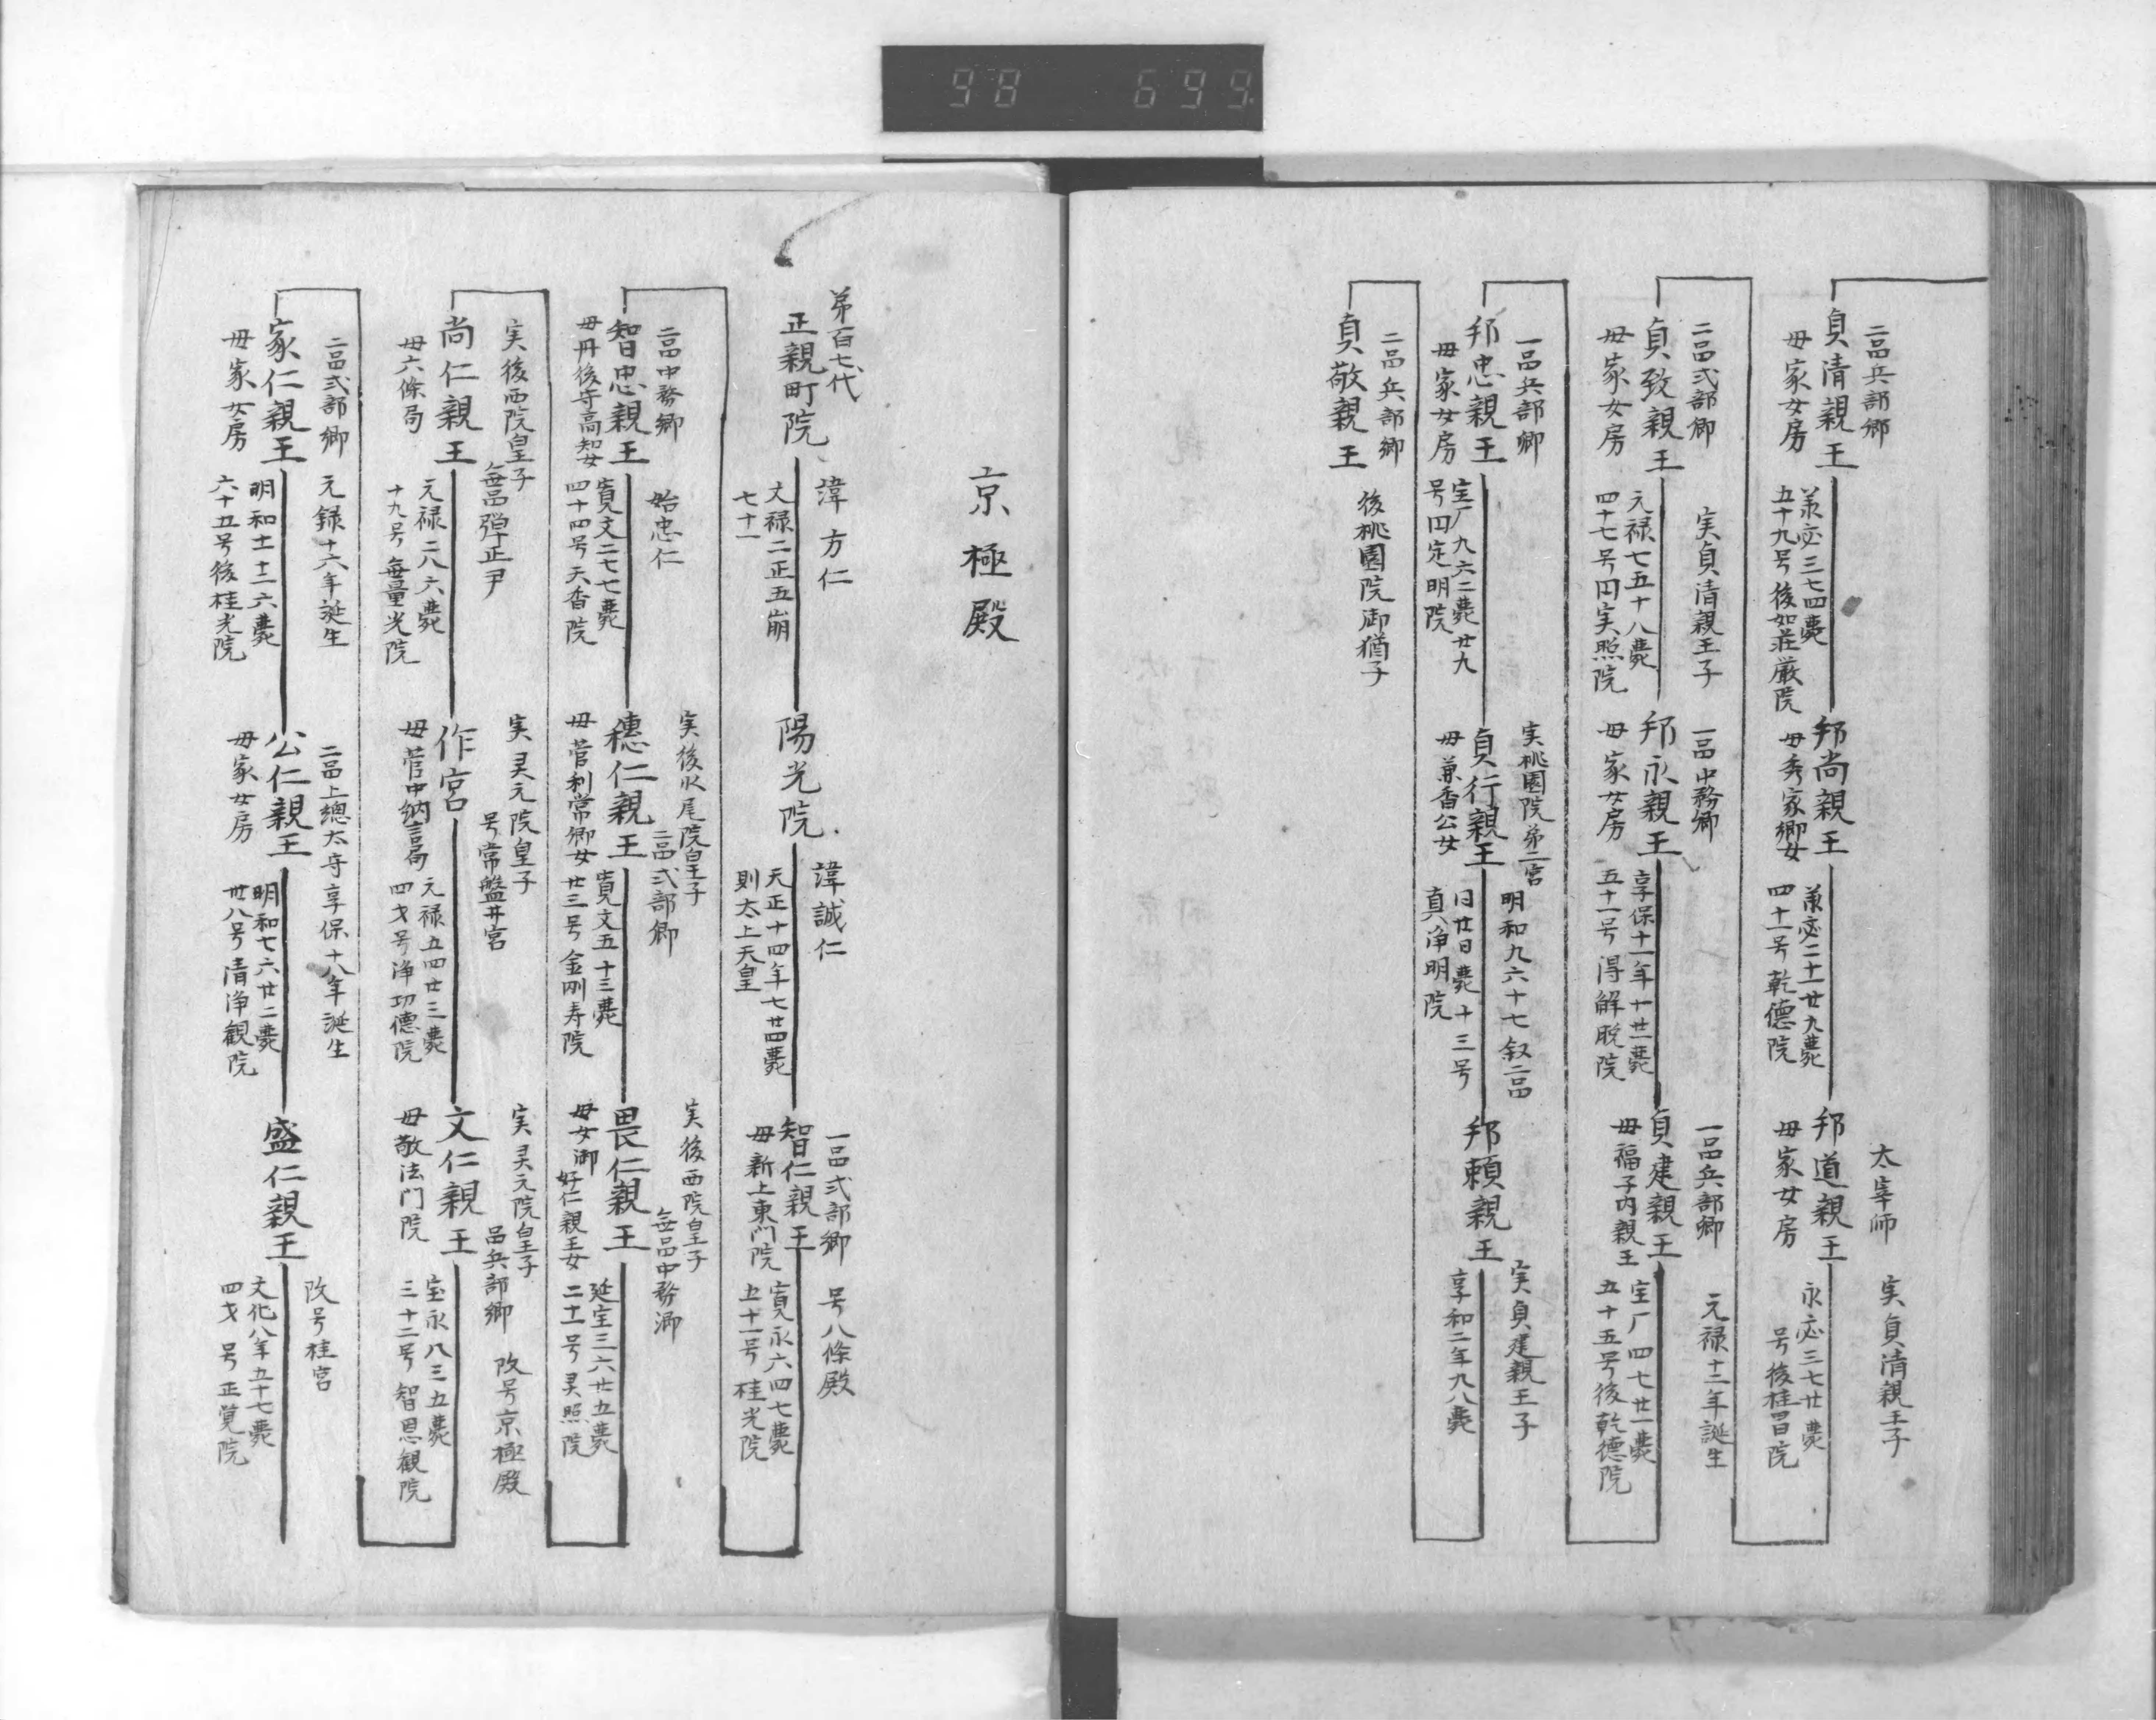 98 699
二品兵部卿
貞清親王
母家女房
承応三七四薨
五十九号後如荘厳院
邦尚親王
母秀家卿女
承応二十一廿九薨
四十一号乾德院
太宰帥
邦道親王
母家女房
実貞清親王子
永応三七廿薨
号後桂昌院
二品式部卿
貞致親王
母家女房
実貞清親王子
元禄七五十八薨
四十七号円実照院
一品中務卿
邦永親王
母家女房
享保十一年十廿一薨
五十一号得解脱院
一品兵部卿
貞建親王
母福子内親王
元禄十二年誕生
宝厂四七廿一薨
五十五号後乾德院
一品兵部卿
邦忠親王
母家女房
宝厂九六二薨廿九
号円定明院
実桃園院第二宮
貞行親王
母兼香公女
明和九六十七叙二品
日廿日薨十三号
真浄明院
邦頼親王
実貞建親王子
享和二年九八薨
二品兵部卿
貞敬親王
後桃園院御猶子
京極殿
第百七代
正親町院
諱方仁
文禄二正五崩
七十一
陽光院
諱誠仁
天正十四年七廿四薨
則太上天皇
一品式部卿
智仁親王
母新上東門院
号八條殿
寛永六四七薨
五十一号桂光院
二品中務卿
智忠親王
母丹後守高知女
始忠仁
寛文二七七薨
四十四号天香院
実後水尾院皇子
二品式部卿
穏仁親王
母菅利常卿女
寛文五十三薨
廿三号金剛寿院
実後西院皇子
無品中務卿
長仁親王
母女御好仁親王女
延宝三六廿五薨
二十一号灵照院
実後西院皇子
無品弾正尹
尚仁親王
母六條局
元禄二八六薨
十九号無量光院
実灵元院皇子
号常盤井宮
作宮
母菅中納言局
元禄五四廿三薨
四才号浄功德院
実灵元院皇子
品兵部卿
改号京極殿
文仁親王
母敬法门院
宝永八三五薨
三十二号智恩観院
二品式部卿
家仁親王
母家女房
元録十六年誕生
明和士十二六薨
六十五号後桂光院
二品上總太守享保十八年誕生
公仁親王
母家女房
明和七六廿二薨
卅八号清浄観院
盛仁親王
改号桂宮
文化八年五十七薨
四才号正覚院